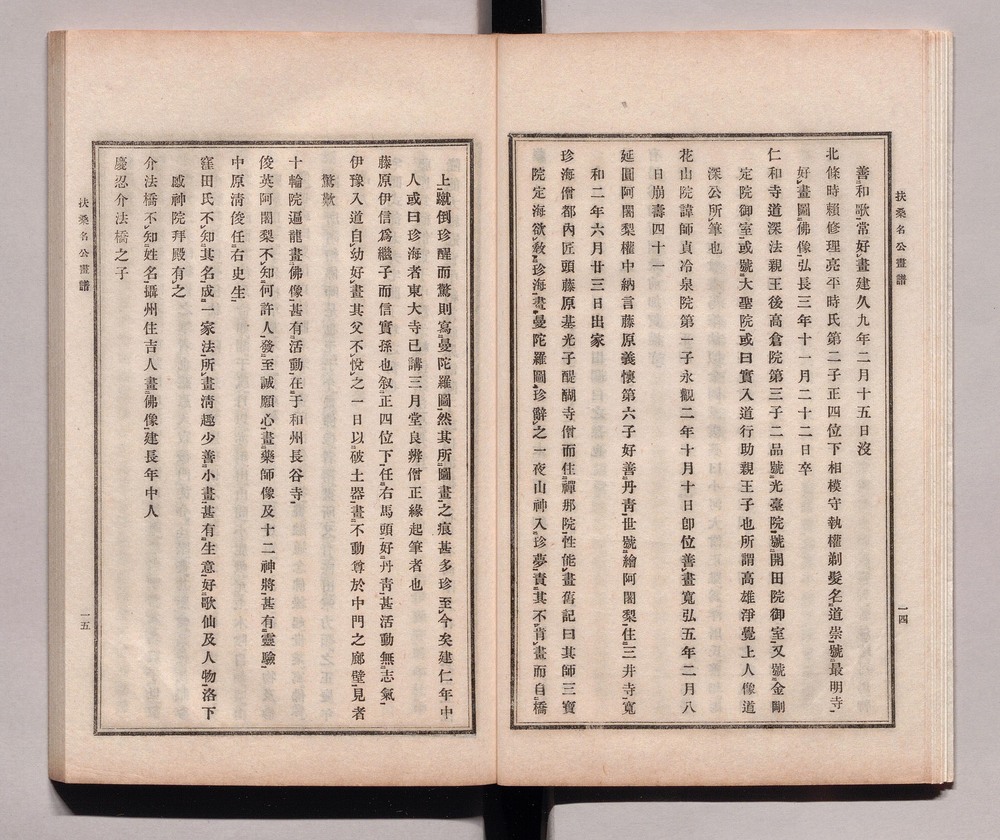 扶桑名公畫譜
一四
善和歌常好畫建久九年二月十五日沒
北條時賴修理亮平時氏第二子正四位下相模守執權剃髮名道崇號最明寺
好畫圖佛像弘長三年十一月二十二日卒
仁和寺道深法親王後高倉院第三子二品號光臺院號開田院御室又號金剛
定院御室或號大聖院或曰實入道行助親王子也所謂高雄淨覺上人像道
深公所筆也
花山院諱師貞冷泉院第一子永觀二年十月十日卽位善畫寬弘五年二月八
日崩壽四十一
延圓阿闍梨權中納言藤原義懷第六子好善丹靑世號繪阿闍梨住三井寺寬
和二年六月廿三日出家
珍海僧都內匠頭藤原基光子醍醐寺僧而住禪那院性能畫舊記曰其師三寶
院定海欲敎珍海畫曼陀羅圖珍辭之一夜山神入珍夢責其不肯畫而自橋
上蹴倒珍醒而驚則寫曼陀羅圖然其所圖畫之痕甚多珍至今矣建仁年中
人或曰珍海者東大寺已講三月堂良辨僧正緣起筆者也
藤原伊信爲繼子而信實孫也叙正四位下任右馬頭好丹靑甚活動無志氣
伊豫入道自幼好畫其父不悅之一日以破土器畫不動尊於中門之廊壁見者
驚歎
十輪院逼龍畫佛像甚有活動在于和州長谷寺
俊英阿闍梨不知何許人發至誠願心畫藥師像及十二神將甚有靈驗
中原淸俊任右史生
窪田氏不知其名成一家法所畫淸趣少善小畫甚有生意好歌仙及人物洛下
感神院拜殿有之
介法橋不知姓名攝州住吉人畫佛像建長年中人
慶忍介法橋之子
扶桑名公畫譜
一五